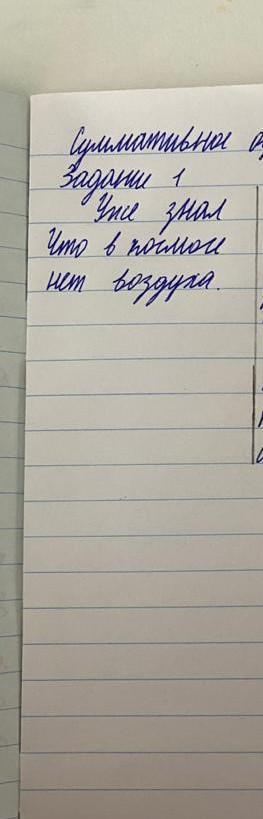 Суммативное
Задание 1
Уже знал
Что в космосе
нет воздуха.